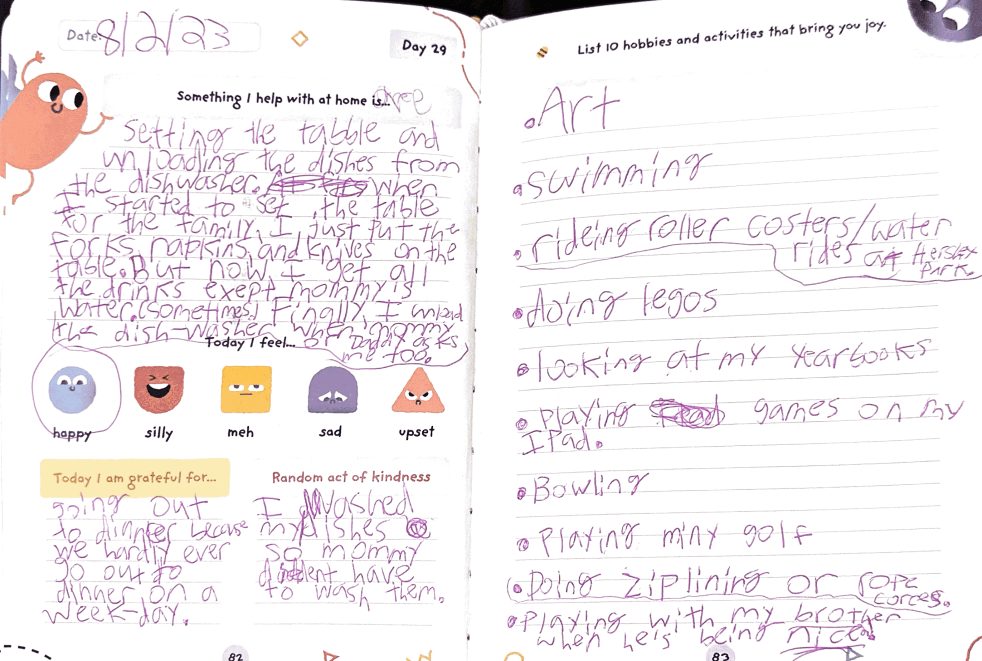 Date: 8/2/23
Day 29
Something I help with at home is...
setting the tabble and
unloading the dishes from
the dishwasher. when
I started to set the table
for the family, I just put the
forks, napkins, and knives on the
table. But now I get all
the drinks exept mommy is
water. (sometimes.) Finally, I unload
the dish-washer when mommy
or Daddy asks
me too.
Today I feel...
happy
silly
meh
sad
upset
Today I am grateful for...
going out
to dinner because
we hardly ever
go out to
dinner on a
week-day.
Random act of kindness
I Washed
my dishes
so mommy
dident have
to wash them.
82
List 10 hobbies and activities that bring you joy.
• Art
• swimming
• rideing roller costers/water
rides at Hershey
Park.
• doing legos
• looking at my yearbooks
• Playing games on my
IPad.
• Bowling
• Playing miny golf
• Doing ziplining or rope
corces.
• Playing with my brother
when he's being nice.
83